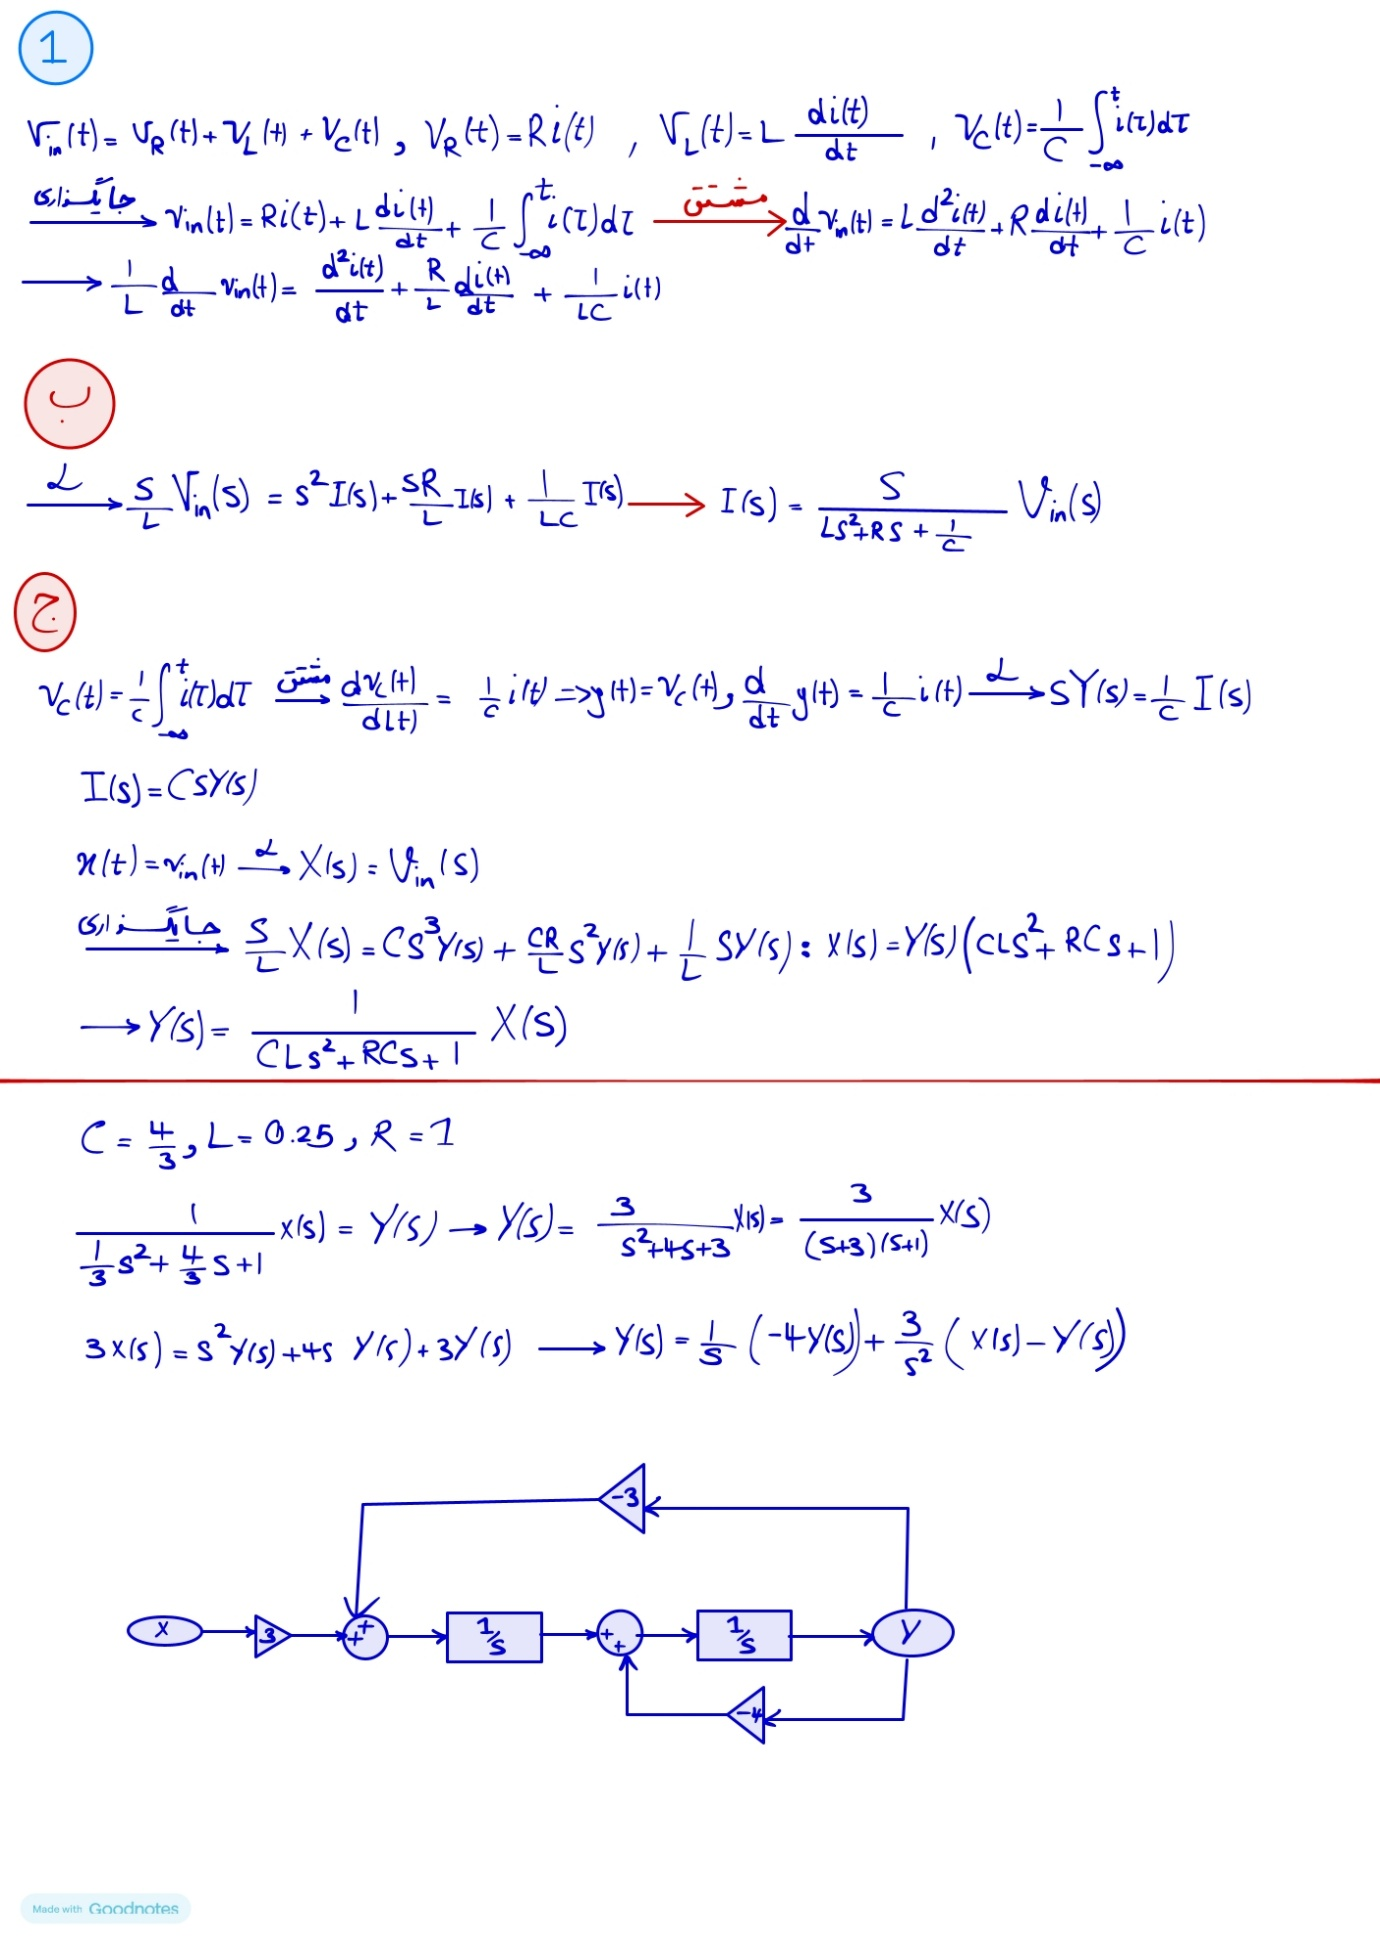 1
V_in(t) = V_R(t) + V_L(t) + V_C(t) , V_R(t) = R i(t) , V_L(t) = L di(t)/dt , V_C(t) = 1/C ∫_{-∞}^{t} i(τ)dτ
جایگذاری → v_in(t) = R i(t) + L di(t)/dt + 1/C ∫_{-∞}^{t} i(τ)dτ مشتق → d/dt v_in(t) = L d²i(t)/dt + R di(t)/dt + 1/C i(t)
→ 1/L d/dt v_in(t) = d²i(t)/dt + R/L di(t)/dt + 1/LC i(t)
ب
ℒ → S/L V_in(s) = s² I(s) + SR/L I(s) + 1/LC I(s) → I(s) = S/(LS² + RS + 1/C) V_in(s)
ج
V_C(t) = 1/C ∫_{-∞}^{t} i(τ)dτ مشتق → dV_C(t)/d(t) = 1/C i(t) => y(t) = V_C(t), d/dt y(t) = 1/C i(t) ℒ → SY(s) = 1/C I(s)
I(s) = CSY(s)
x(t) = v_in(t) ℒ → X(s) = V_in(s)
جایگذاری → S/L X(s) = CS³Y(s) + CR/L S²Y(s) + 1/L SY(s) : X(s) = Y(s)(CLS² + RCS + 1)
→ Y(s) = 1/(CLS² + RCS + 1) X(s)
C = 4/3 , L = 0.25 , R = 1
1/(1/3 S² + 4/3 S + 1) X(s) = Y(s) → Y(s) = 3/(S² + 4S + 3) X(s) = 3/((S+3)(S+1)) X(s)
3X(s) = S²Y(s) + 4S Y(s) + 3Y(s) → Y(s) = 1/S (-4Y(s)) + 3/S² (X(s) - Y(s))
-3
X 3 + + 1/S + + 1/S Y
-4
Made with Goodnotes